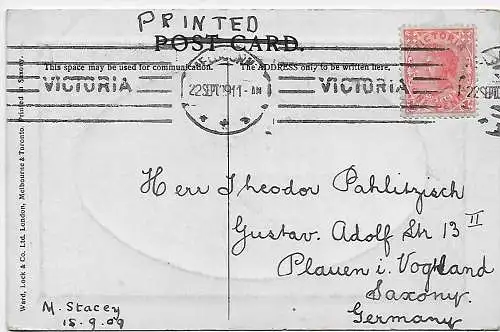 PRINTED
POST CARD.
This space may be used for communication.
The ADDRESS only to be written here.
VICTORIA
MELBOURNE
22 SEPT 1911 - AM
VICTORIA
VICTORIA
22 SEPT
Herr Theodor Pahlitzsch
Gustav. Adolf Str 13 II
Plauen i. Vogtland
Saxony.
Germany
M. Stacey
15.9.09
Ward, Lock & Co. Ltd. London, Melbourne & Toronto. Printed in Saxony.